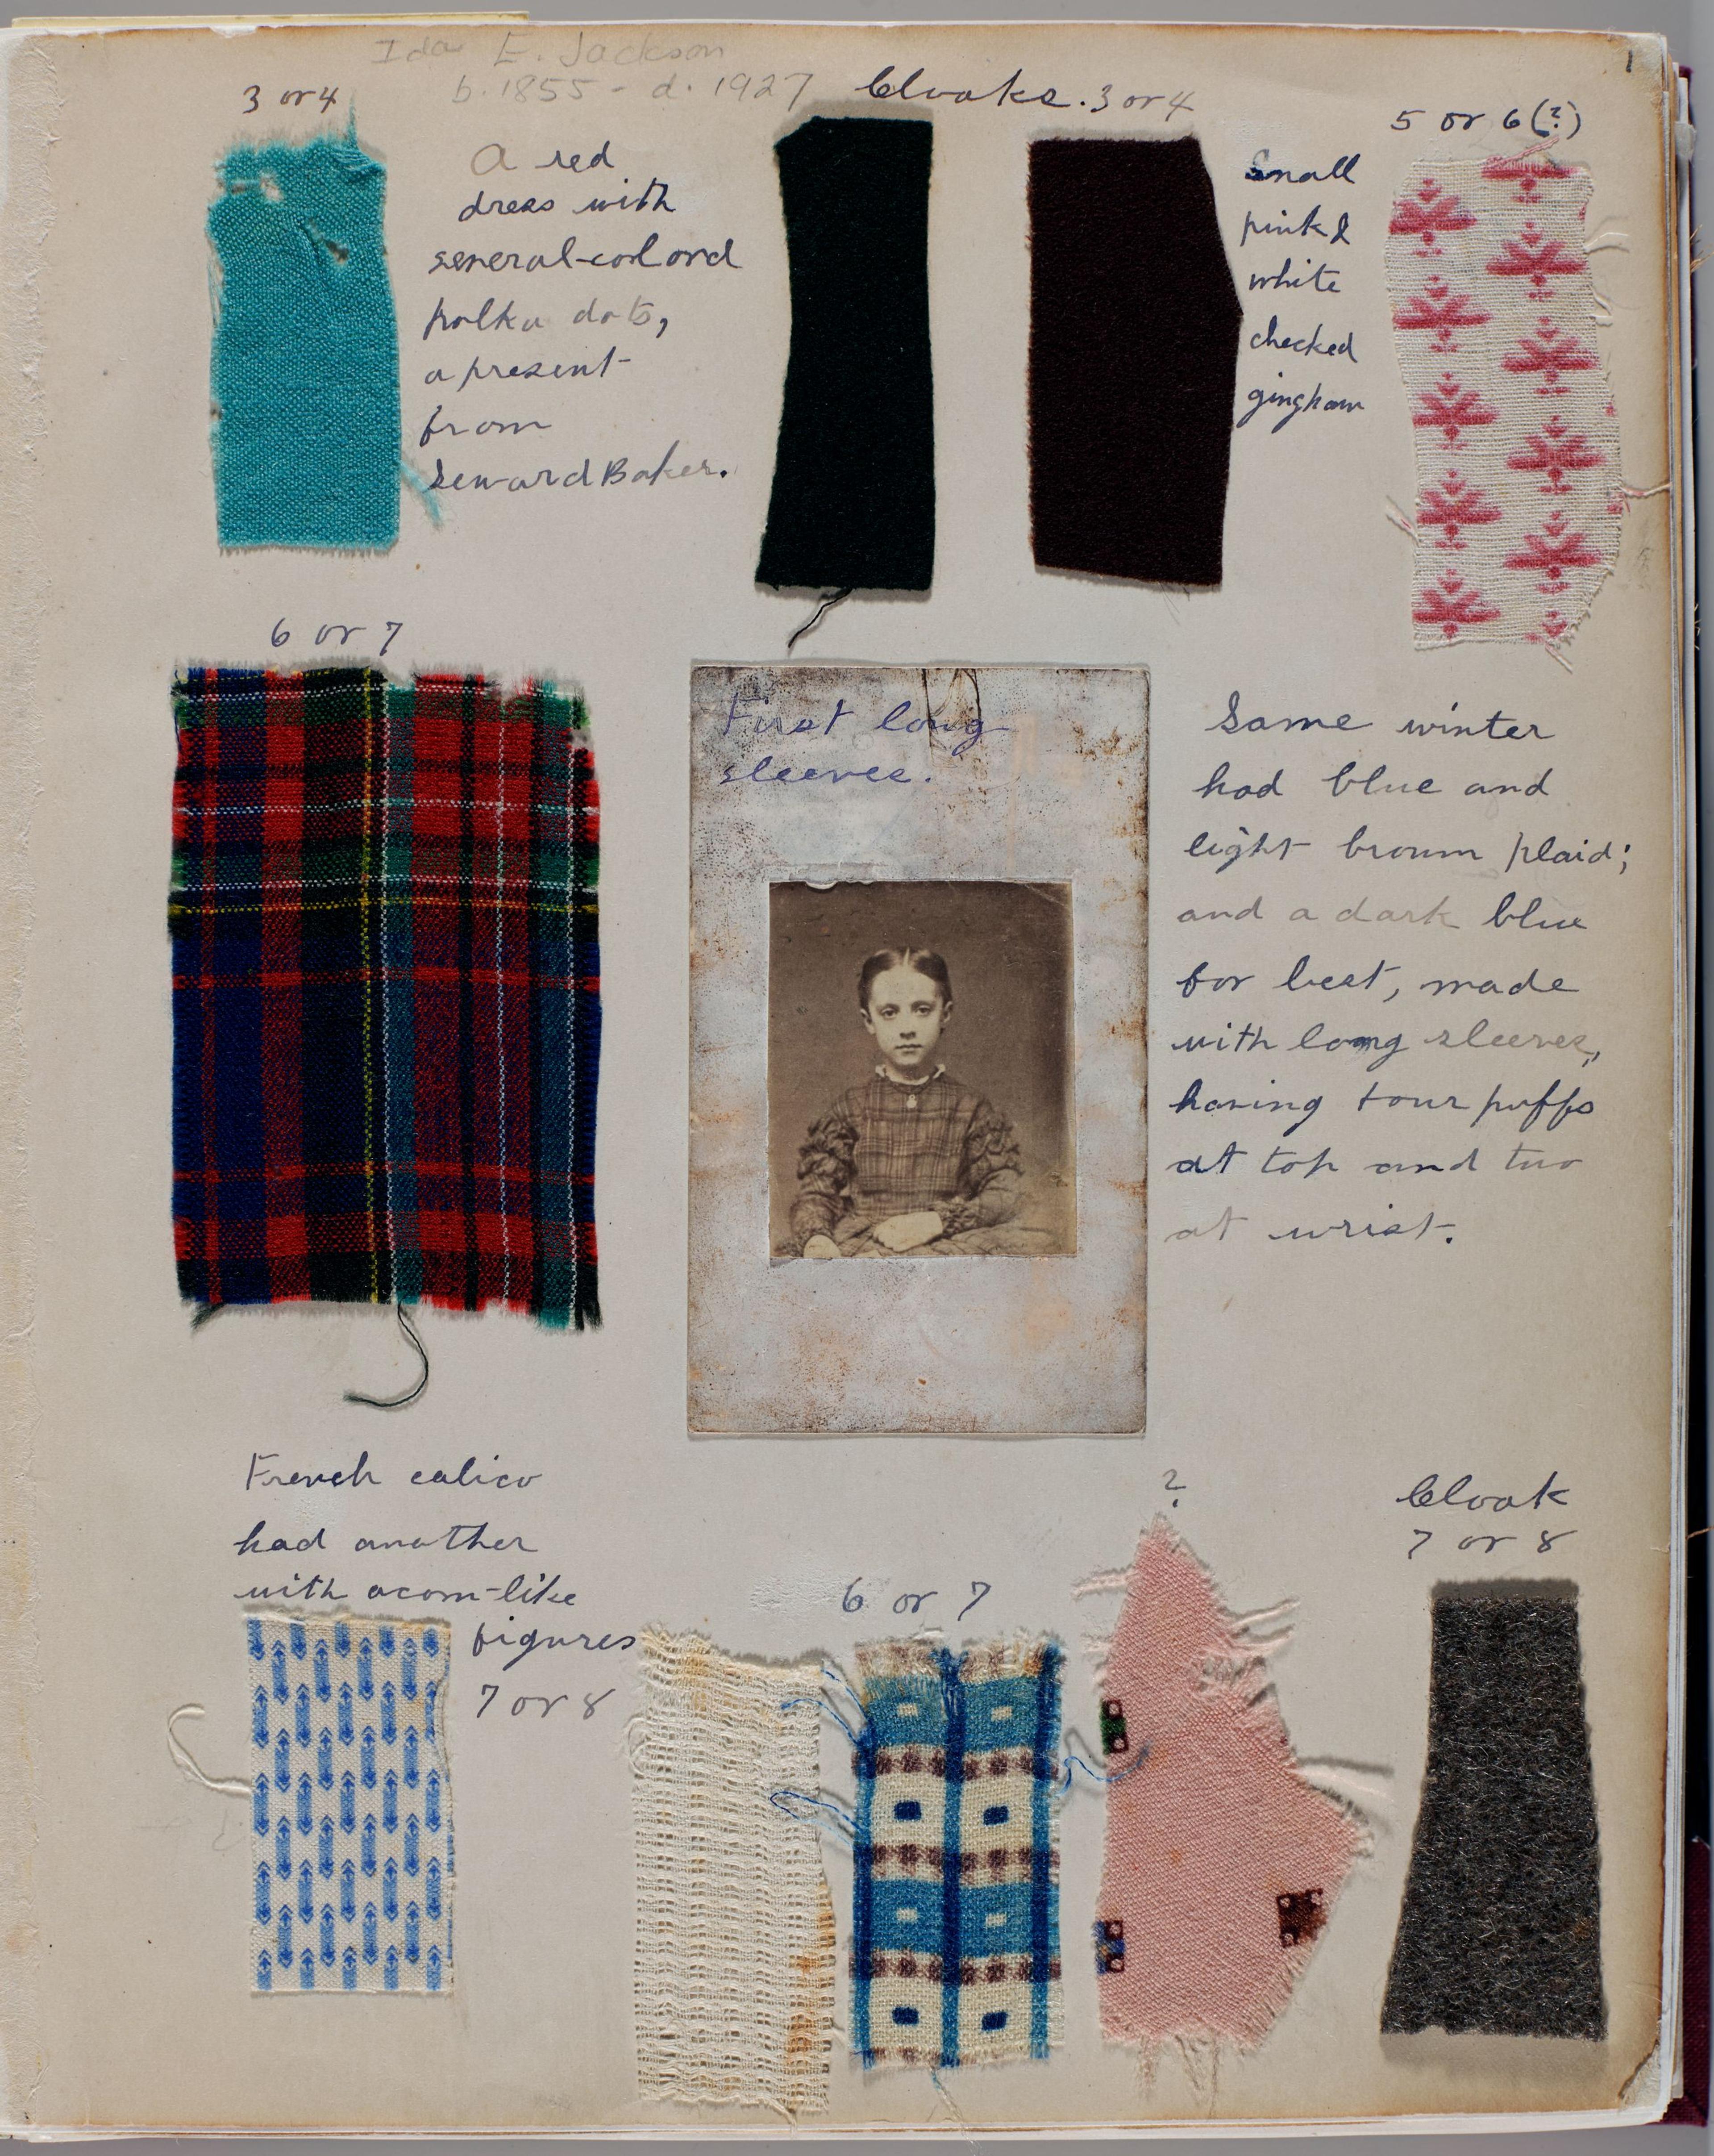 Ida E. Jackson
b. 1855 - d. 1927
1
3 or 4
A red
dress with
several-colored
polka dots,
a present
from
Seward Baker.
Cloaks. 3 or 4
Small
pink &
white
checked
gingham
5 or 6 (?)
6 or 7
First long
sleeves.
Same winter
had blue and
light brown plaid;
and a dark blue
for best, made
with long sleeves,
having four puffs
at top and two
at wrist.
French calico
had another
with acorn-like
figures
7 or 8
6 or 7
?
Cloak
7 or 8